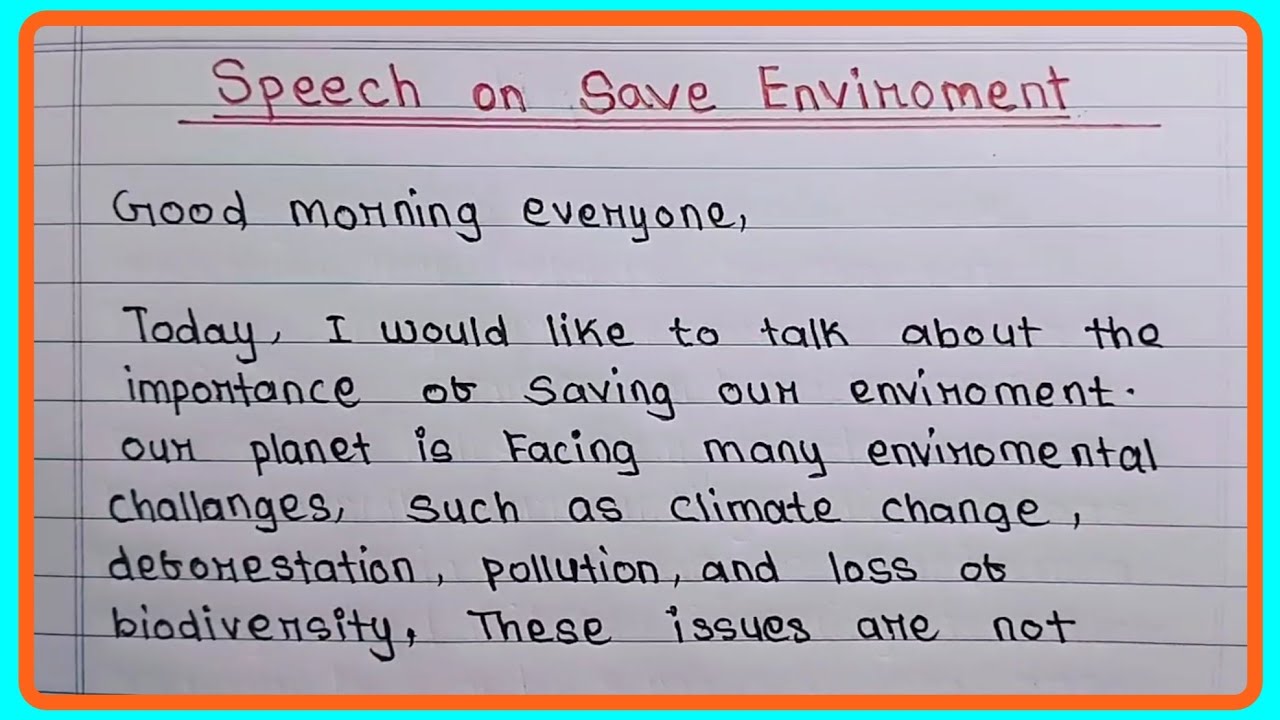 Speech on Save Enviroment
Good morning everyone,
Today, I would like to talk about the
importance of saving our enviroment.
our planet is Facing many enviromental
challanges, such as climate change,
deforestation, pollution, and loss of
biodiversity, These issues are not